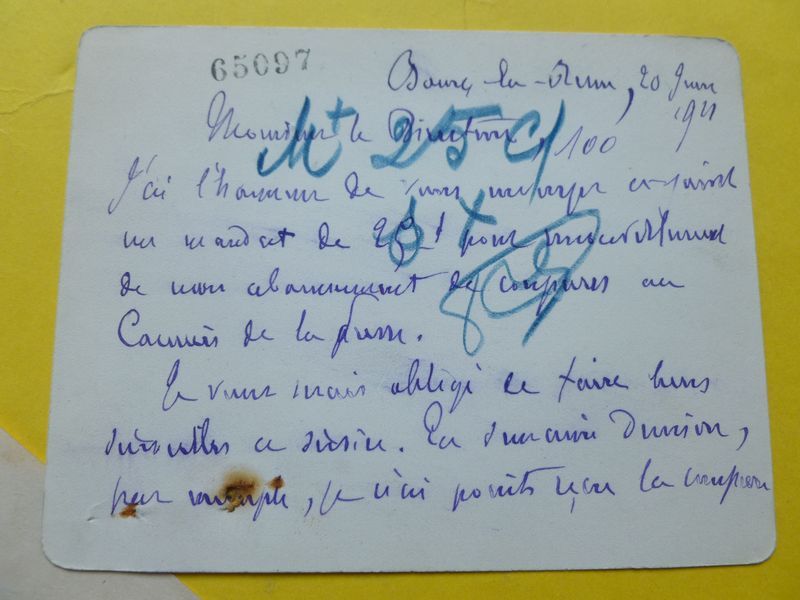 65097
Bourg-la-Reine, 20 Juin
1921
Monsieur le Directeur,
Mt 25 c/ 100
J'ai l'honneur de vous envoyer ci-joint
un mandat de 25 f pour renouvellement
de mon abonnement de coupures au
Courrier de la Presse.
Je vous serais obligé de faire bien
surveiller ce service. En dernier,
par exemple, je n'ai point reçu la coupure